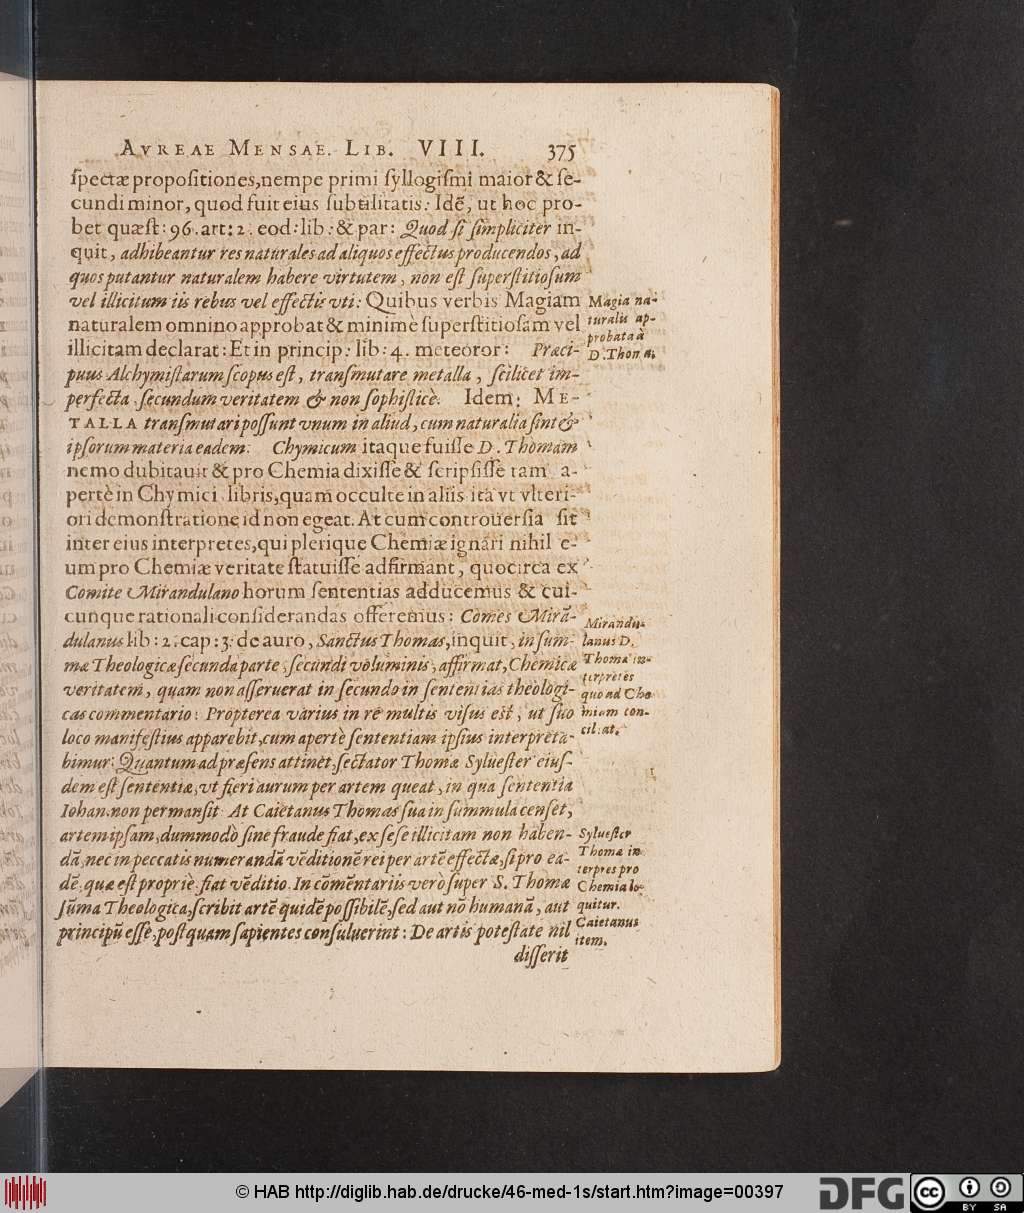 AVREAE MENSAE. LIB. VIII. 375
ſpectæ propoſitiones, nempe primi ſyllogiſmi maior & ſe-
cundi minor, quod fuit eius ſubtilitatis: Idẽ, ut hoc pro-
bet quæſt: 96. art: 2. eod: lib: & par: Quod ſi ſimpliciter in-
quit, adhibeantur res naturales ad aliquos effectus producendos, ad
quos putantur naturalem habere virtutem, non eſt ſuperſtitioſum
vel illicitum iis rebus vel effectis vti: Quibus verbis Magiam
naturalem omnino approbat & minimè ſuperſtitioſam vel
illicitam declarat: Et in princip: lib: 4. meteoror: Præci-
puus Alchymiſtarum ſcopus eſt, tranſmutare metalla, ſcilicet im-
perfecta ſecundum veritatem & non ſophiſticè. Idem: ME-
TALLA tranſmutari poſſunt vnum in aliud, cum naturalia ſint &
ipſorum materia eadem: Chymicum itaque fuiſſe D. Thomam
nemo dubitauit & pro Chemia dixiſſe & ſcripſiſſe tam a-
pertè in Chymici libris, quam occulte in aliis ita vt vlteri-
ori demonſtratione id non egeat. At cum controuerſia ſit
inter eius interpretes, qui plerique Chemiæ ignari nihil e-
um pro Chemiæ veritate ſtatuiſſe adfirmant, quocirca ex
Comite Mirandulano horum ſententias adducemus & cui-
cunque rationali conſiderandas offeremus: Comes Mirã-
dulanus lib: 2. cap: 3. de auro, Sanctus Thomas, inquit, in ſum-
mæ Theologicæ ſecunda parte, ſecundi voluminis, affirmat, Chemicæ
veritatem, quam non aſſeruerat in ſecundo in ſententias theologi-
cas commentario: Propterea varius in re multis viſus eſt, ut ſuo
loco manifeſtius apparebit, cum apertè ſententiam ipſius interpreta-
bimur: Quantum ad præſens attinet, ſectator Thomæ Sylueſter eiuſ-
dem eſt ſententiæ, vt fieri aurum per artem queat, in qua ſententia
Iohan. non permanſit At Caietanus Thomas ſua in ſummula cenſet,
artem ipſam, dummodò ſine fraude fiat, ex ſeſe illicitam non haben-
dã, nec in peccatis numerandã vẽditionẽ rei per artẽ effectæ, ſi pro ea-
dẽ, quæ eſt propriè fiat vẽditio. In cõmẽtariis verò ſuper S. Thomæ
ſũma Theologica, ſcribit artẽ quidẽ poſſibilẽ, ſed aut nõ humanã, aut
principũ eſſe, poſtquam ſapientes conſuluerint: De artis poteſtate nil
diſſerit
Magia na-
turalis ap-
probata à
D. Thoma.
Mirandu-
lanus D.
Thomæ in-
terpretes
quo ad Che
miam con-
ciliat.
Sylueſter
Thomæ in
terpres pro
Chemia lo-
quitur.
Caietanus
item.
© HAB http://diglib.hab.de/drucke/46-med-1s/start.htm?image=00397
DFG
cc BY SA